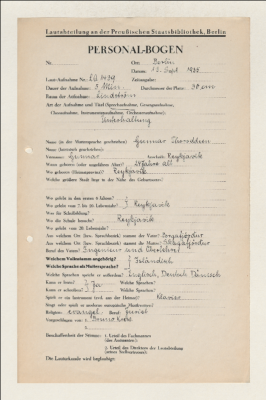 Lautabteilung an der Preußischen Staatsbibliothek, Berlin
PERSONAL-BOGEN
Nr. Ort: Berlin
Datum: 12. Sept. 1935
Laut-Aufnahme Nr.: LA 1439 Zeitangabe:
Dauer der Aufnahme: 3 Min. Durchmesser der Platte: 30 cm
Raum der Aufnahme:
Art der Aufnahme und Titel (Sprechaufnahme, Gesangsaufnahme,
Choraufnahme, Instrumentenaufnahme, Orchesteraufnahme):
Unterhaltung
Name (in der Muttersprache geschrieben): Gunnar Thoroddsen
Name (lateinisch geschrieben):
Vorname: Gunnar Reykjavik
Wann geboren (oder ungefähres Alter)? 24 Jahre alt
Wo geboren (Heimatprovinz)? Reykjavik
Welche größere Stadt liegt in der Nähe des Geburtsortes?
Wo gelebt in den ersten 6 Jahren?
Wo gelebt vom 7. bis 20. Lebensjahr? Reykjavik
Was für Schulbildung?
Wo die Schule besucht? Reykjavik
Wo gelebt vom 20. Lebensjahr?
Aus welchem Ort (bzw. Sprachbezirk) stammt der Vater?
Aus welchem Ort (bzw. Sprachbezirk) stammt die Mutter?
Beruf des Vaters? Ingenieur
Welchem Volksstamm angehörig? Isländisch
Welche Sprache als Muttersprache?
Welche Sprachen spricht er außerdem? Englisch, Deutsch, Dänisch
Kann er lesen? Ja Welche Sprachen?
Kann er schreiben? Ja Welche Sprachen?
Spielt er ein Instrument (evtl. aus der Heimat)? Klavier
Singt oder spielt er moderne europäische Musikweisen?
Religion: evangel. Beruf: Jurist
Vorgeschlagen von: 1. Bruno
2.
Beschaffenheit der Stimme: 1. Urteil des Fachmannes
(des Assistenten)
2. Urteil des Direktors der Lautabteilung
(seines Stellvertreters)
Die Lauturkunde wird beglaubigt: